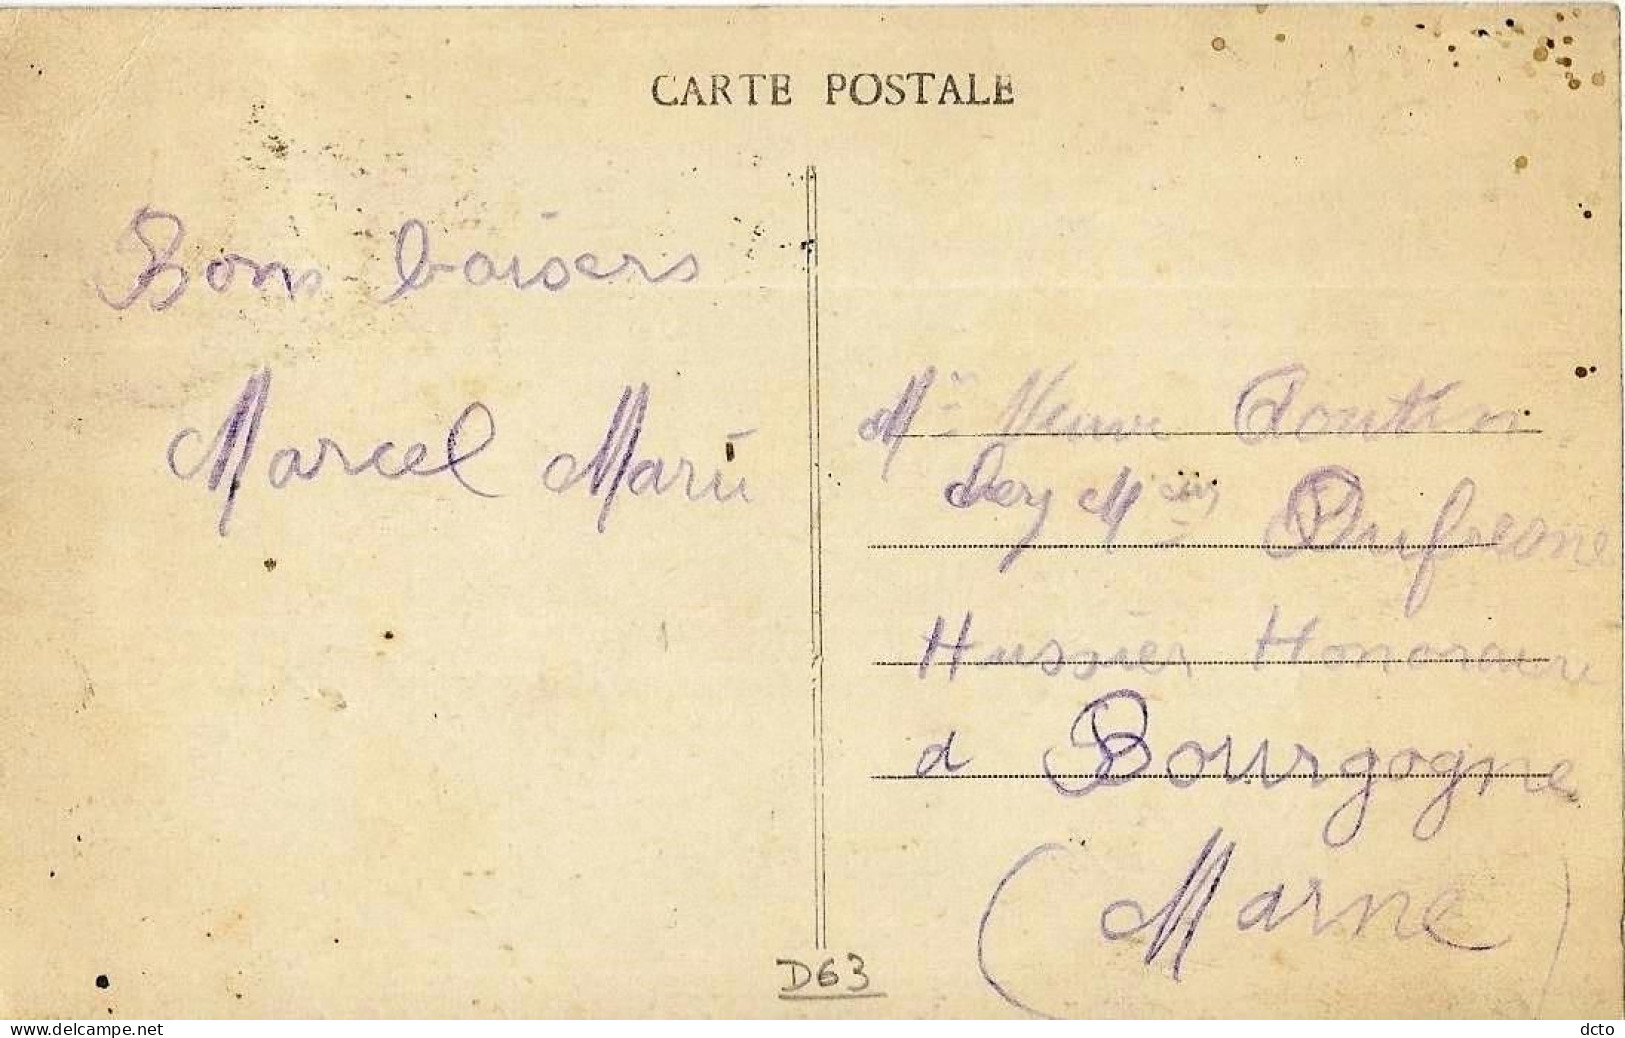 CARTE POSTALE
Bons baisers
Marcel Marie
Mme Veuve
Mr Dufresne
Huissier Honoraire
a Bourgogne
(Marne)
D63
www.delcampe.net
dcto